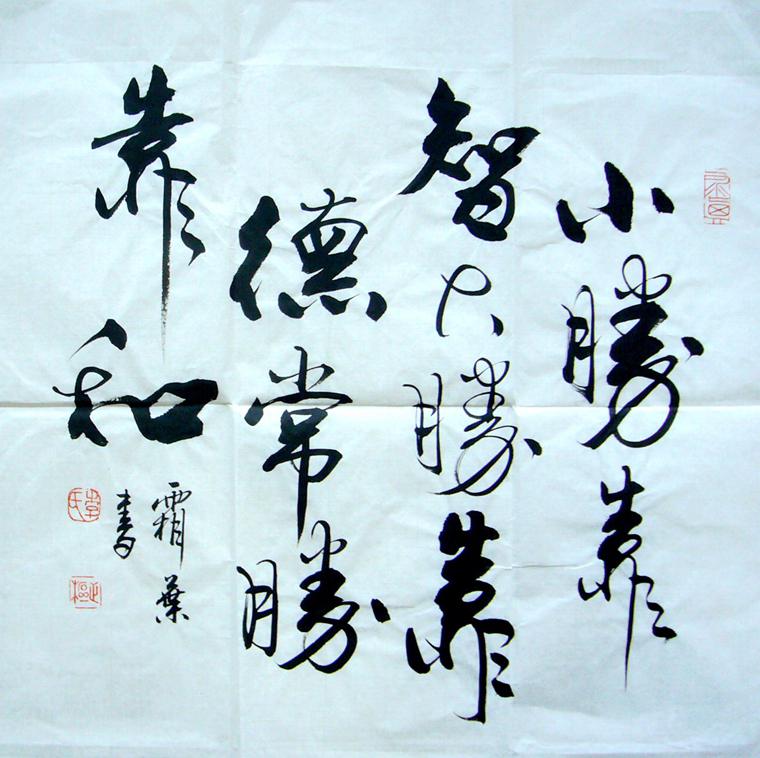 小勝靠
智大勝靠
德常勝
靠和
霜葉
書